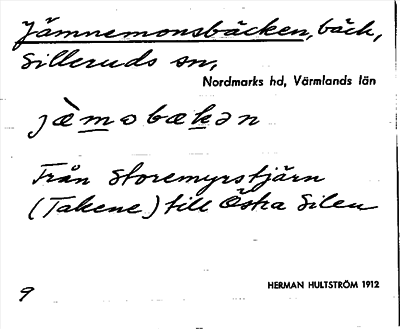 Jämnemonsbäcken, bäck,
Silleruds sn,
Nordmarks hd, Värmlands län
jæ̀mobækən
Från Storemyrstjärn
(Takene) till Östra Silen
HERMAN HULTSTRÖM 1912
9